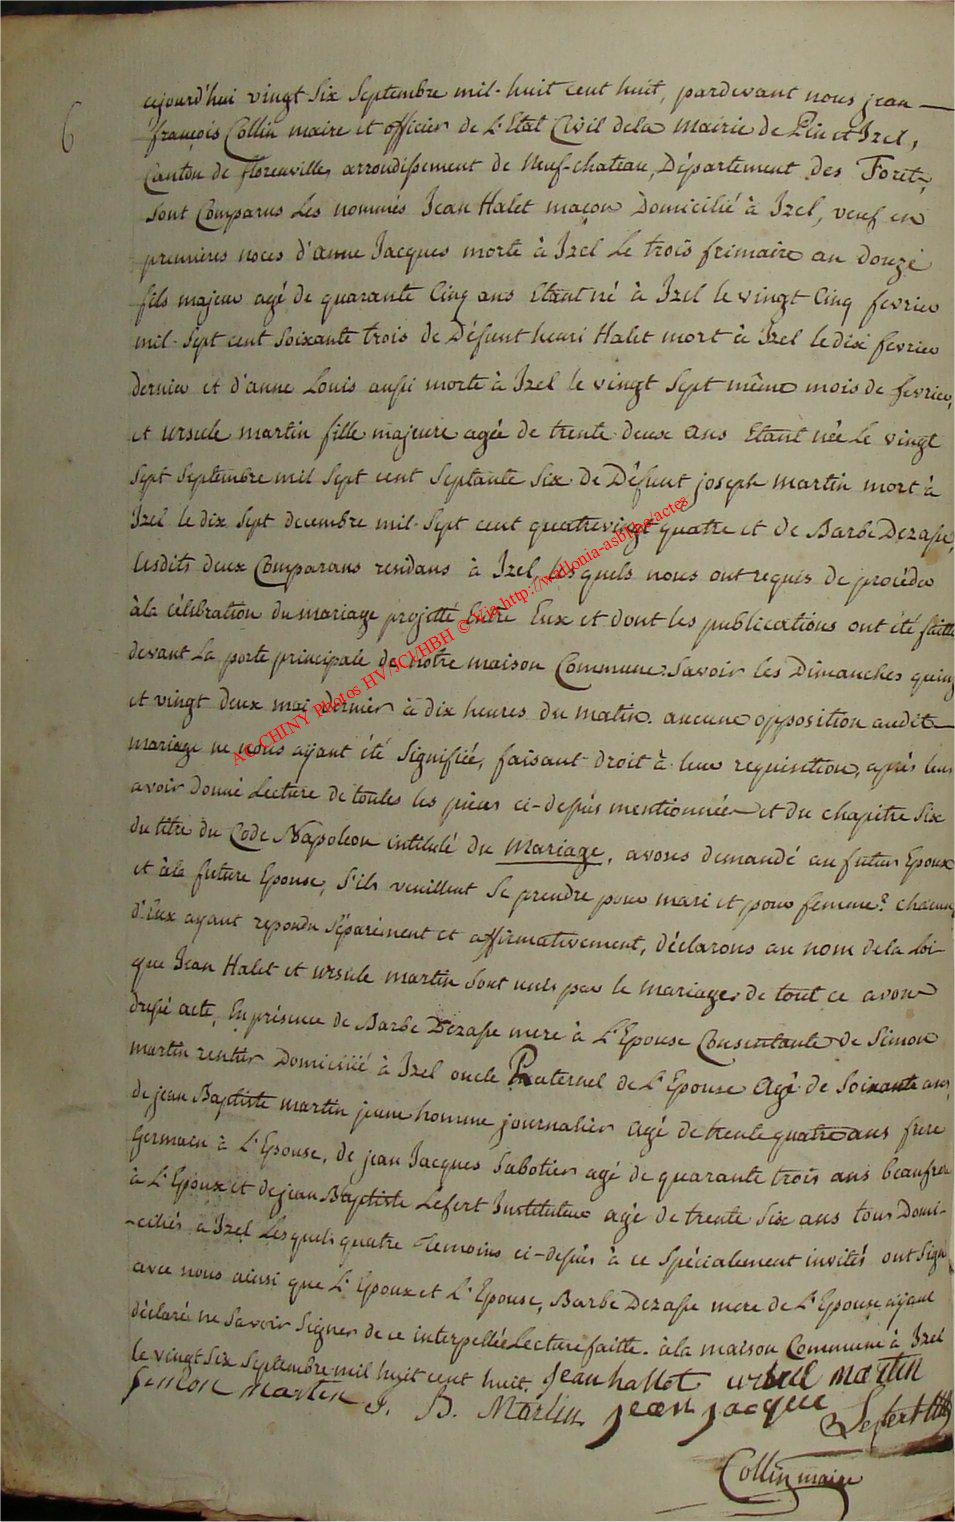 6
aujourd'hui vingt Six Septembre mil-huit cent huit, pardevant nous jean
françois Collin maire et officier de L'Etat Civil dela Mairie de Pin et Izel,
Canton de florenville, arrondissement de Neuf-chateau, Département des Foret,
Sont Comparus Les nommés Jean Halet maçon Domicilié à Izel, veuf en
premieres noces d'anne Jacques morte à Izel Le trois frimaire an douze
fils majeur agé de quarante Cinq ans Etant né à Izel le vingt Cinq fevrier
mil-Sept cent Soixante trois de Défunt henri Halet mort à Izel le dix fevrier
dernier et d'anne Louis aussi morte à Izel le vingt Sept même mois de fevrier,
et ursule martin fille majeure agée de trente deux ans Etant née Le vingt
Sept Septembre mil Sept cent Septante Six de Défunt joseph martin mort à
Izel le dix Sept decembre mil-Sept cent quatrevingt quatre et de Barbe Dezasse,
lesdits deux Comparans rendans à Izel, lesquels nous ont requis de procéder
à la célébration du mariage projetté Entre Eux et dont les publications ont été faitte
devant La porte principale de notre maison Commune. Savoir les Dimanches quinz
et vingt deux mai dernier à dix heures du matin. aucune opposition audit
mariage ne nous ayant été Signifiée, faisant droit à leur requisition, après leur
avoir donné Lecture de toutes les pieces ci-dessus mentionnées et du chapitre Six
du titre du Code Napoleon intitulé du Mariage, avons demandé au futur Epoux
et à la future Epouse, S'ils veuillent Se prendre pour mari et pour femme? chacun
d'Eux ayant repondu Séparément et affirmativement, déclarons au nom de la Loi
que Jean Halet et ursule martin Sont unis par le mariage. de tout ce avons
dressé acte, En présence de Barbe Dezasse mere à L'Epouse Consentante de Simon
martin rentier Domicilié à Izel oncle Paternel de L'Epouse Agé de Soixante ans,
de jean Baptiste martin jeune homme journalier agé de trente quatre ans frere
Germain à L'Epouse, de jean Jacques Sabotier agé de quarante trois ans beaufrere
à L'Epoux et de jean Baptiste Lefert Instituteur agé de trente Six ans tous Domi-
-ciliés à Izel Lesquels quatre Temoins ci-dessus à ce Spécialement invités ont Sign
avec nous ainsi que L'Epoux et L'Epouse, Barbe Dezasse mere de L'Epouse ayant
déclaré ne Savoir Signer de ce interpellée Lecture faitte. à la maison Commune à Izel
le vingt Six Septembre mil huit cent huit. Jean hallot ursull martin
Simon Martin J. B. Martin jean jacque Lefert
Collin maire
AC CHINY Photos HV/JCI/HBH © via http://wallonia-asbl.be/actes